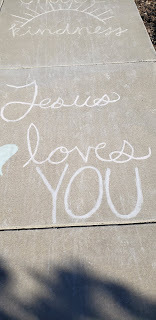 kindness
Jesus
loves
YOU